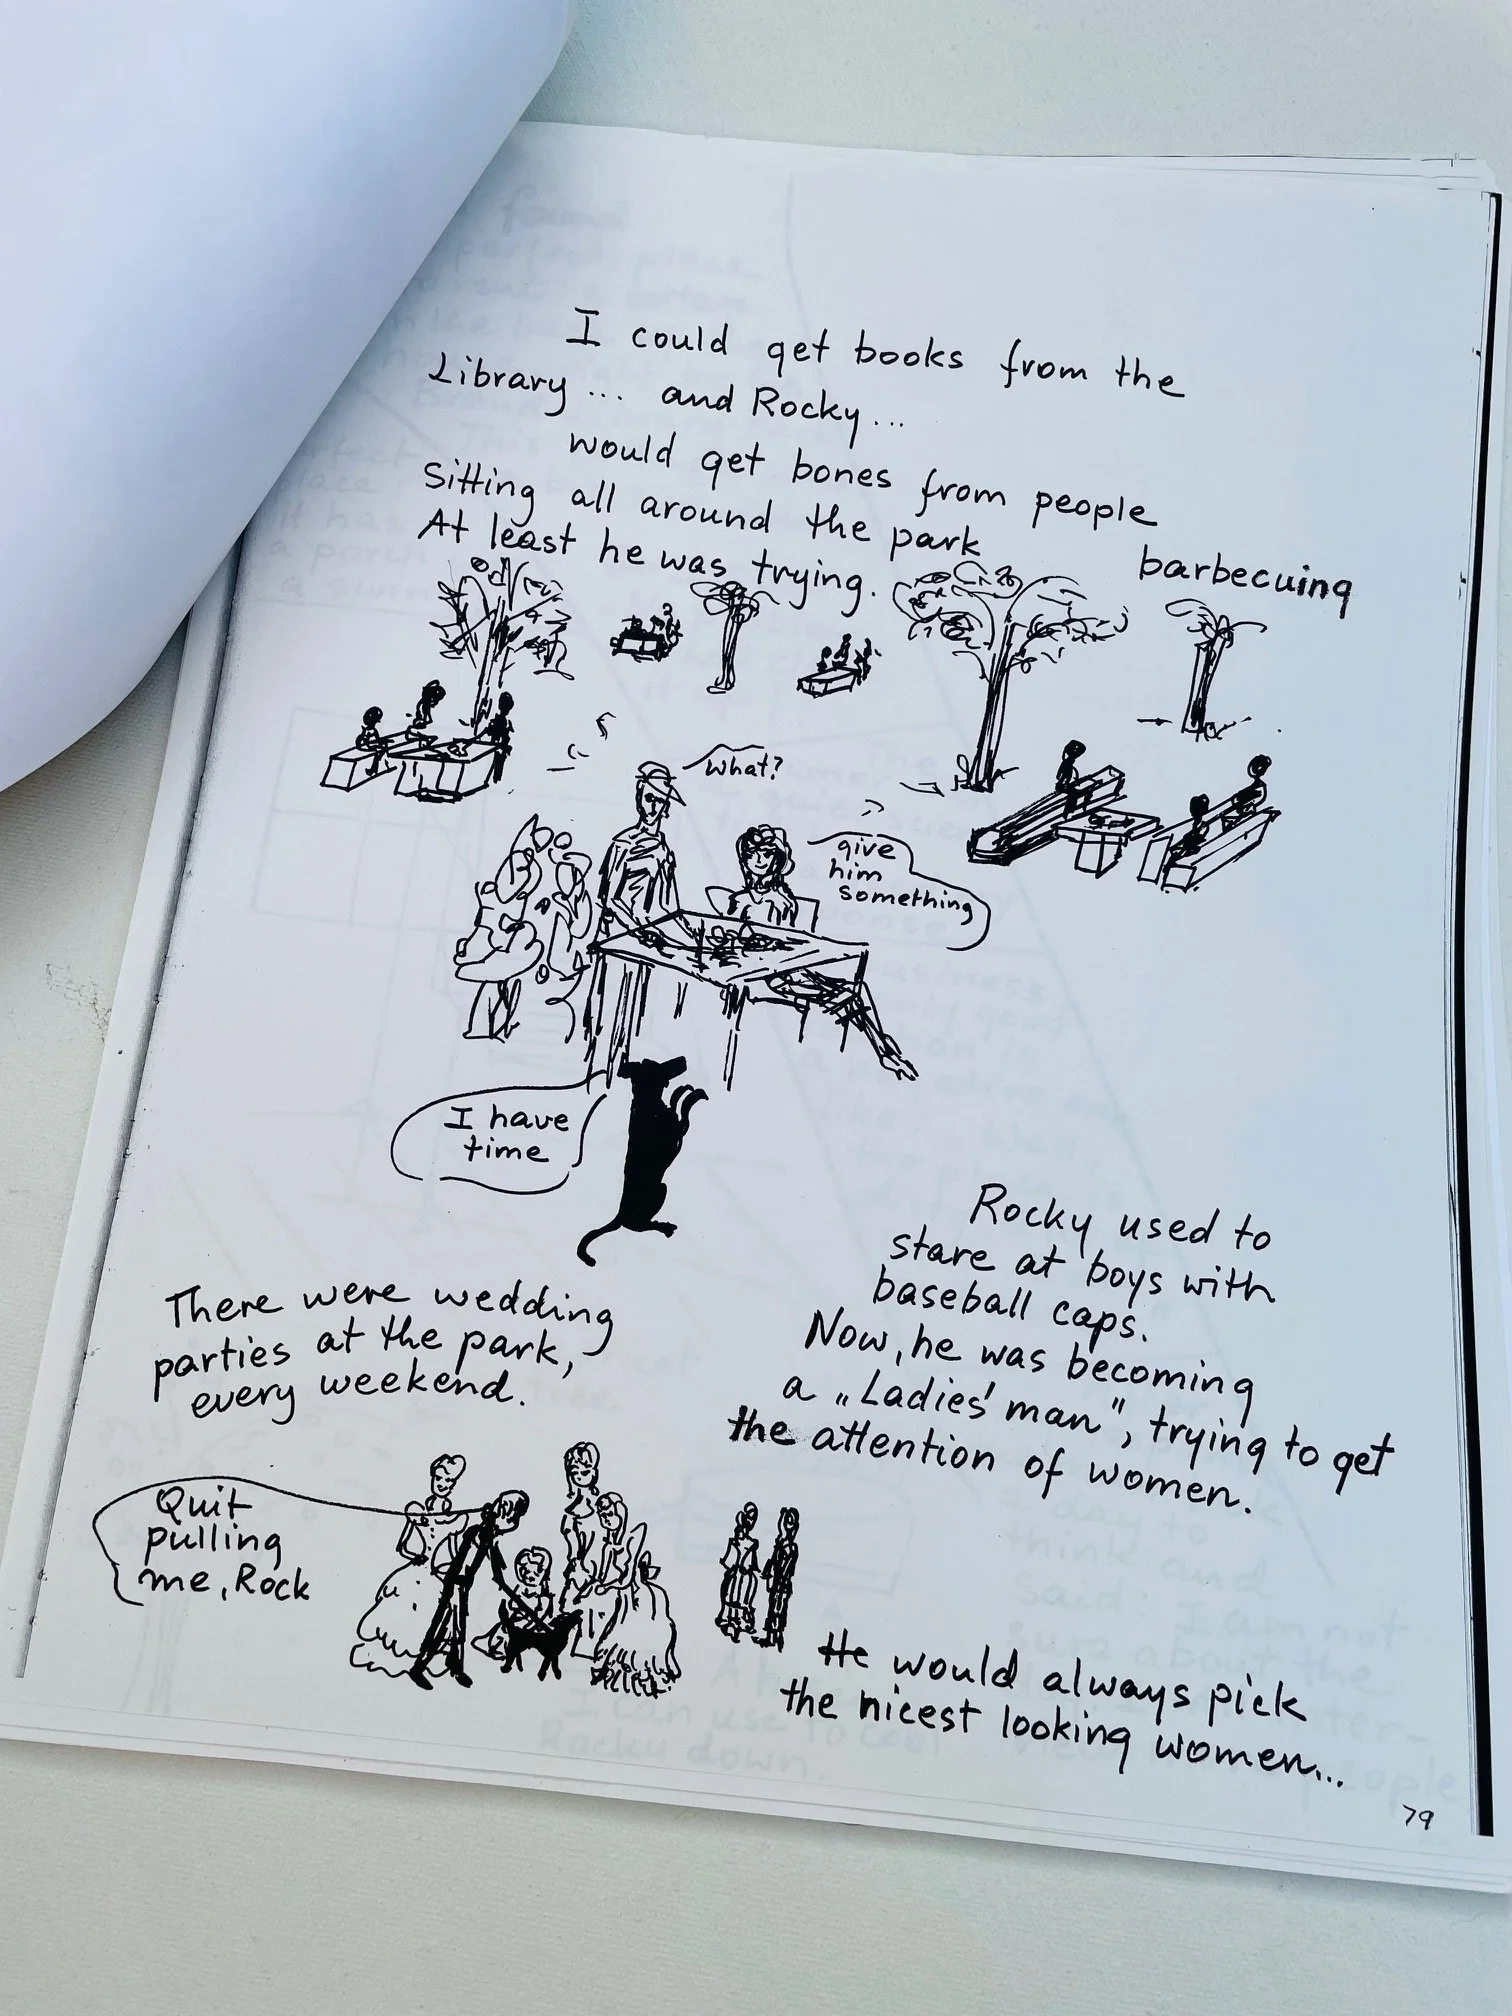 I could get books from the
Library... and Rocky...
would get bones from people
Sitting all around the park barbecuing
At least he was trying.
What?
give
him
something
I have
time
Rocky used to
stare at boys with
baseball caps.
Now, he was becoming
a „Ladies' man", trying to get
the attention of women.
There were wedding
parties at the park,
every weekend.
Quit
pulling
me, Rock
He would always pick
the nicest looking women...
79